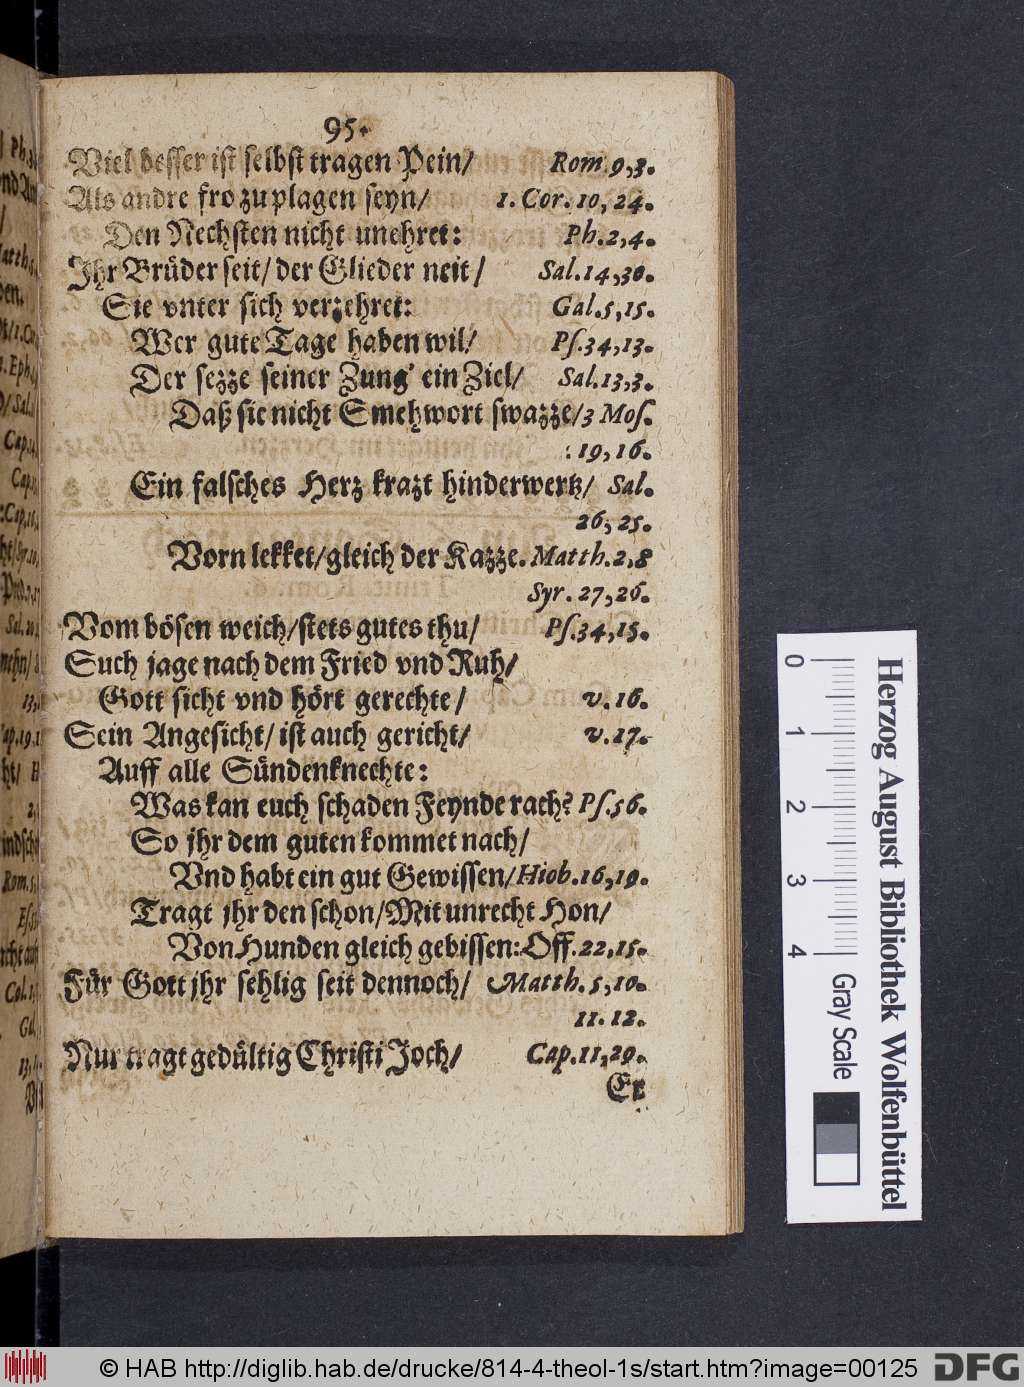 95.
Viel besser ist selbst tragen Pein/ Rom. 9,3.
Als andre fro zu plagen seyn/ 1. Cor. 10, 24.
Den Nechsten nicht unehret: Ph. 2,4.
Ihr Brüder seit/ der Glieder neit/ Sal. 14,30.
Sie vnter sich verzehret: Gal. 5,15.
Wer gute Tage haben wil/ Ps. 34,13.
Der sezze seiner Zung' ein Ziel/ Sal. 13,3.
Daß sie nicht Smehwort swazze/ 3 Mos.
: 19,16.
Ein falsches Herz krazt hinderwertz/ Sal.
26, 25.
Vorn lekket/ gleich der Kazze. Matth. 2,8
Syr. 27,26.
Vom bösen weich/ stets gutes thu/ Ps. 34,15.
Such jage nach dem Fried vnd Ruh/
Gott sicht vnd hört gerechte/ v. 16.
Sein Angesicht/ ist auch gericht/ v. 17.
Auff alle Sündenknechte:
Was kan euch schaden Feynde rach? Ps. 56.
So jhr dem guten kommet nach/
Vnd habt ein gut Gewissen/ Hiob. 16,19.
Tragt jhr den schon/ Mit unrecht Hon/
Von Hunden gleich gebissen: Off. 22,15.
Für Gott jhr sehlig seit dennoch/ Matth. 5,10.
11. 12.
Nur tragt gedültig Christi Joch/ Cap. 11,29.
Er
0 1 2 3 4
Gray Scale
Herzog August Bibliothek Wolfenbüttel
© HAB http://diglib.hab.de/drucke/814-4-theol-1s/start.htm?image=00125
DFG